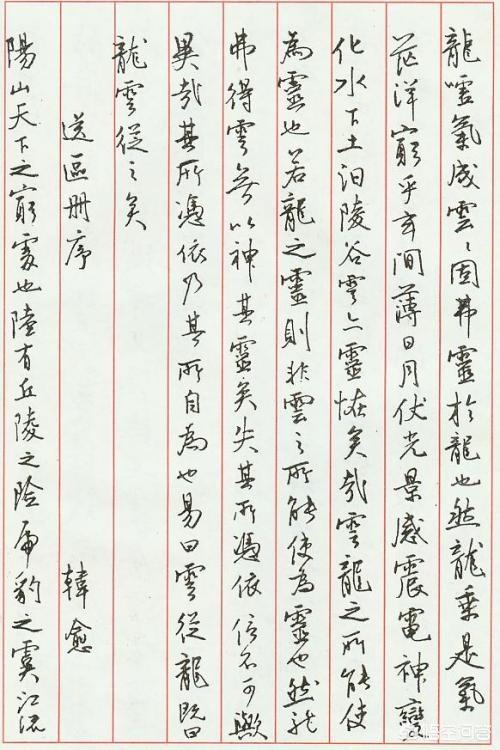 龍噓氣成雲〻固弗靈於龍也然龍乘是氣
茫洋窮乎玄間薄日月伏光景感震電神變
化水下土汩陵谷雲亦靈怪矣哉雲龍之所能使
為靈也若龍之靈則非雲之所能使為靈也然龍
弗得雲無以神其靈矣失其所憑依信不可歟
異哉其所憑依乃其所自為也易曰雲從龍既曰
龍雲從之矣
送區冊序 韓愈
陽山天下之窮處也陸有丘陵之險虎豹之虞江流
悟空问答